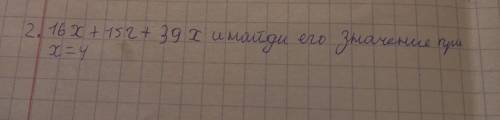 2. 16x + 152 + 39x и найди его значение при
x = 4